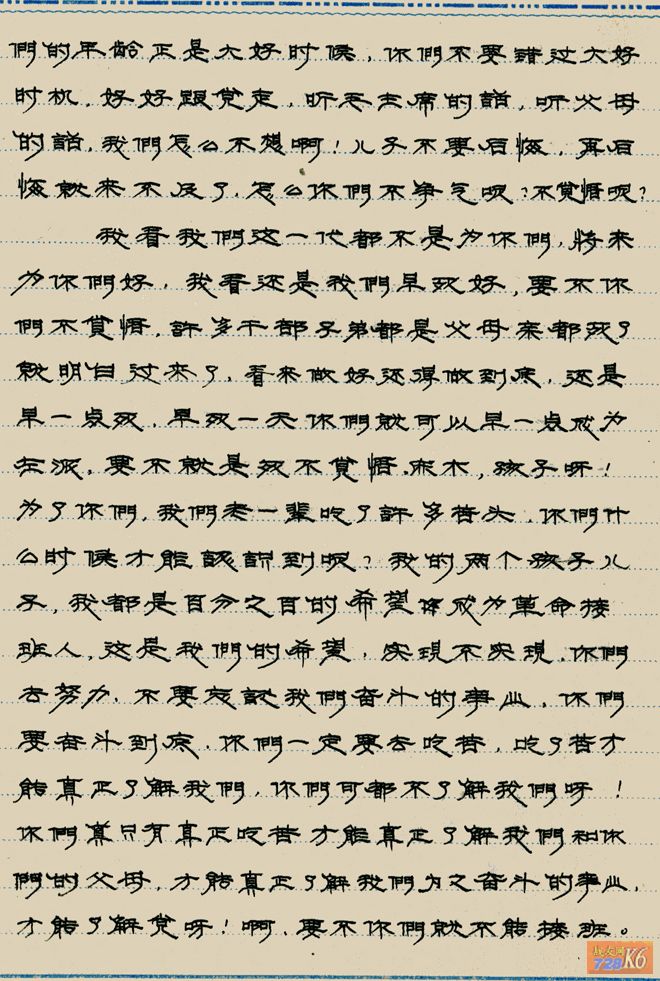 們的年龄正是大好时候，你們不要错过大好
时机，好好跟党走，听毛主席的話，听父母
的話，我們怎么不想啊！儿子不要后悔，再后
悔就来不及了，怎么你們不争气呢？不覚悟呢？
我看我們这一代都不是为你們，将来
为你們好，我看还是我們早死好，要不你
們不覚悟，許多干部子弟都是父母亲都死了
就明白过来了，看来做好还得做到底，还是
早一点死，早死一天你們就可以早一点成为
左派，要不就是死不覚悟，麻木，孩子呀！
为了你們，我們老一輩吃了許多苦头，你們什
么时候才能認識到呢？我的两个孩子儿
子，我都是百分之百的希望你成为革命接
班人，这是我們的希望，实現不实現，你們
去努力，不要忘記我們奋斗的事业，你們
要奋斗到底，你們一定要去吃苦，吃了苦才
能真正了解我們，你們可都不了解我們呀！
你們真只有真正吃苦才能真正了解我們和你
們的父母，才能真正了解我們为之奋斗的事业，
才能了解党呀！啊，要不你們就不能接班。
728K6